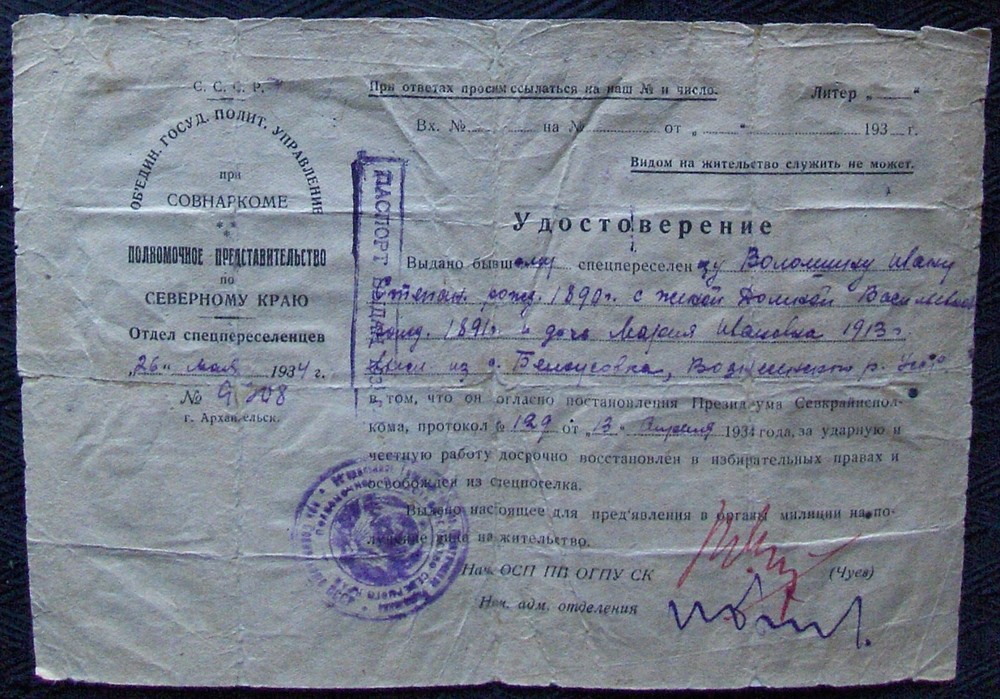 С. С. С. Р.
ОБ'ЕДИН. ГОСУД. ПОЛИТ. УПРАВЛЕНИЕ
при
СОВНАРКОМЕ
* *
*
ПОЛНОМОЧНОЕ ПРЕДСТАВИТЕЛЬСТВО
по
СЕВЕРНОМУ КРАЮ
Отдел спецпереселенцев
„26" мая 1934 г.
№ 9708
г. Архангельск.
При ответах просим ссылаться на наш № и число.
Литер „ "
Вх. № на № от „ " 193 г.
Видом на жительство служить не может.
ПАСПОРТ ВЫДАН 193 г.
Удостоверение
Выдано бывшему спецпереселенцу Воломшину Ивану
Степан. рожд. 1890г. с женой Домной Васильевной
рожд. 1891г. и дочь Мария Ивановна 1913г.
высл. из с. Белоусовка, Вознесенского р.
в том, что он согласно постановления Президиума Севкрайиспол-
кома, протокол № 129 от „13" апреля 1934 года, за ударную и
честную работу досрочно восстановлен в избирательных правах и
освобожден из спецпоселка.
Выдано настоящее для пред'явления в органы милиции на по-
лучение вида на жительство.
Нач. ОСП ПП ОГПУ СК (Чуев)
Нач. адм. отделения